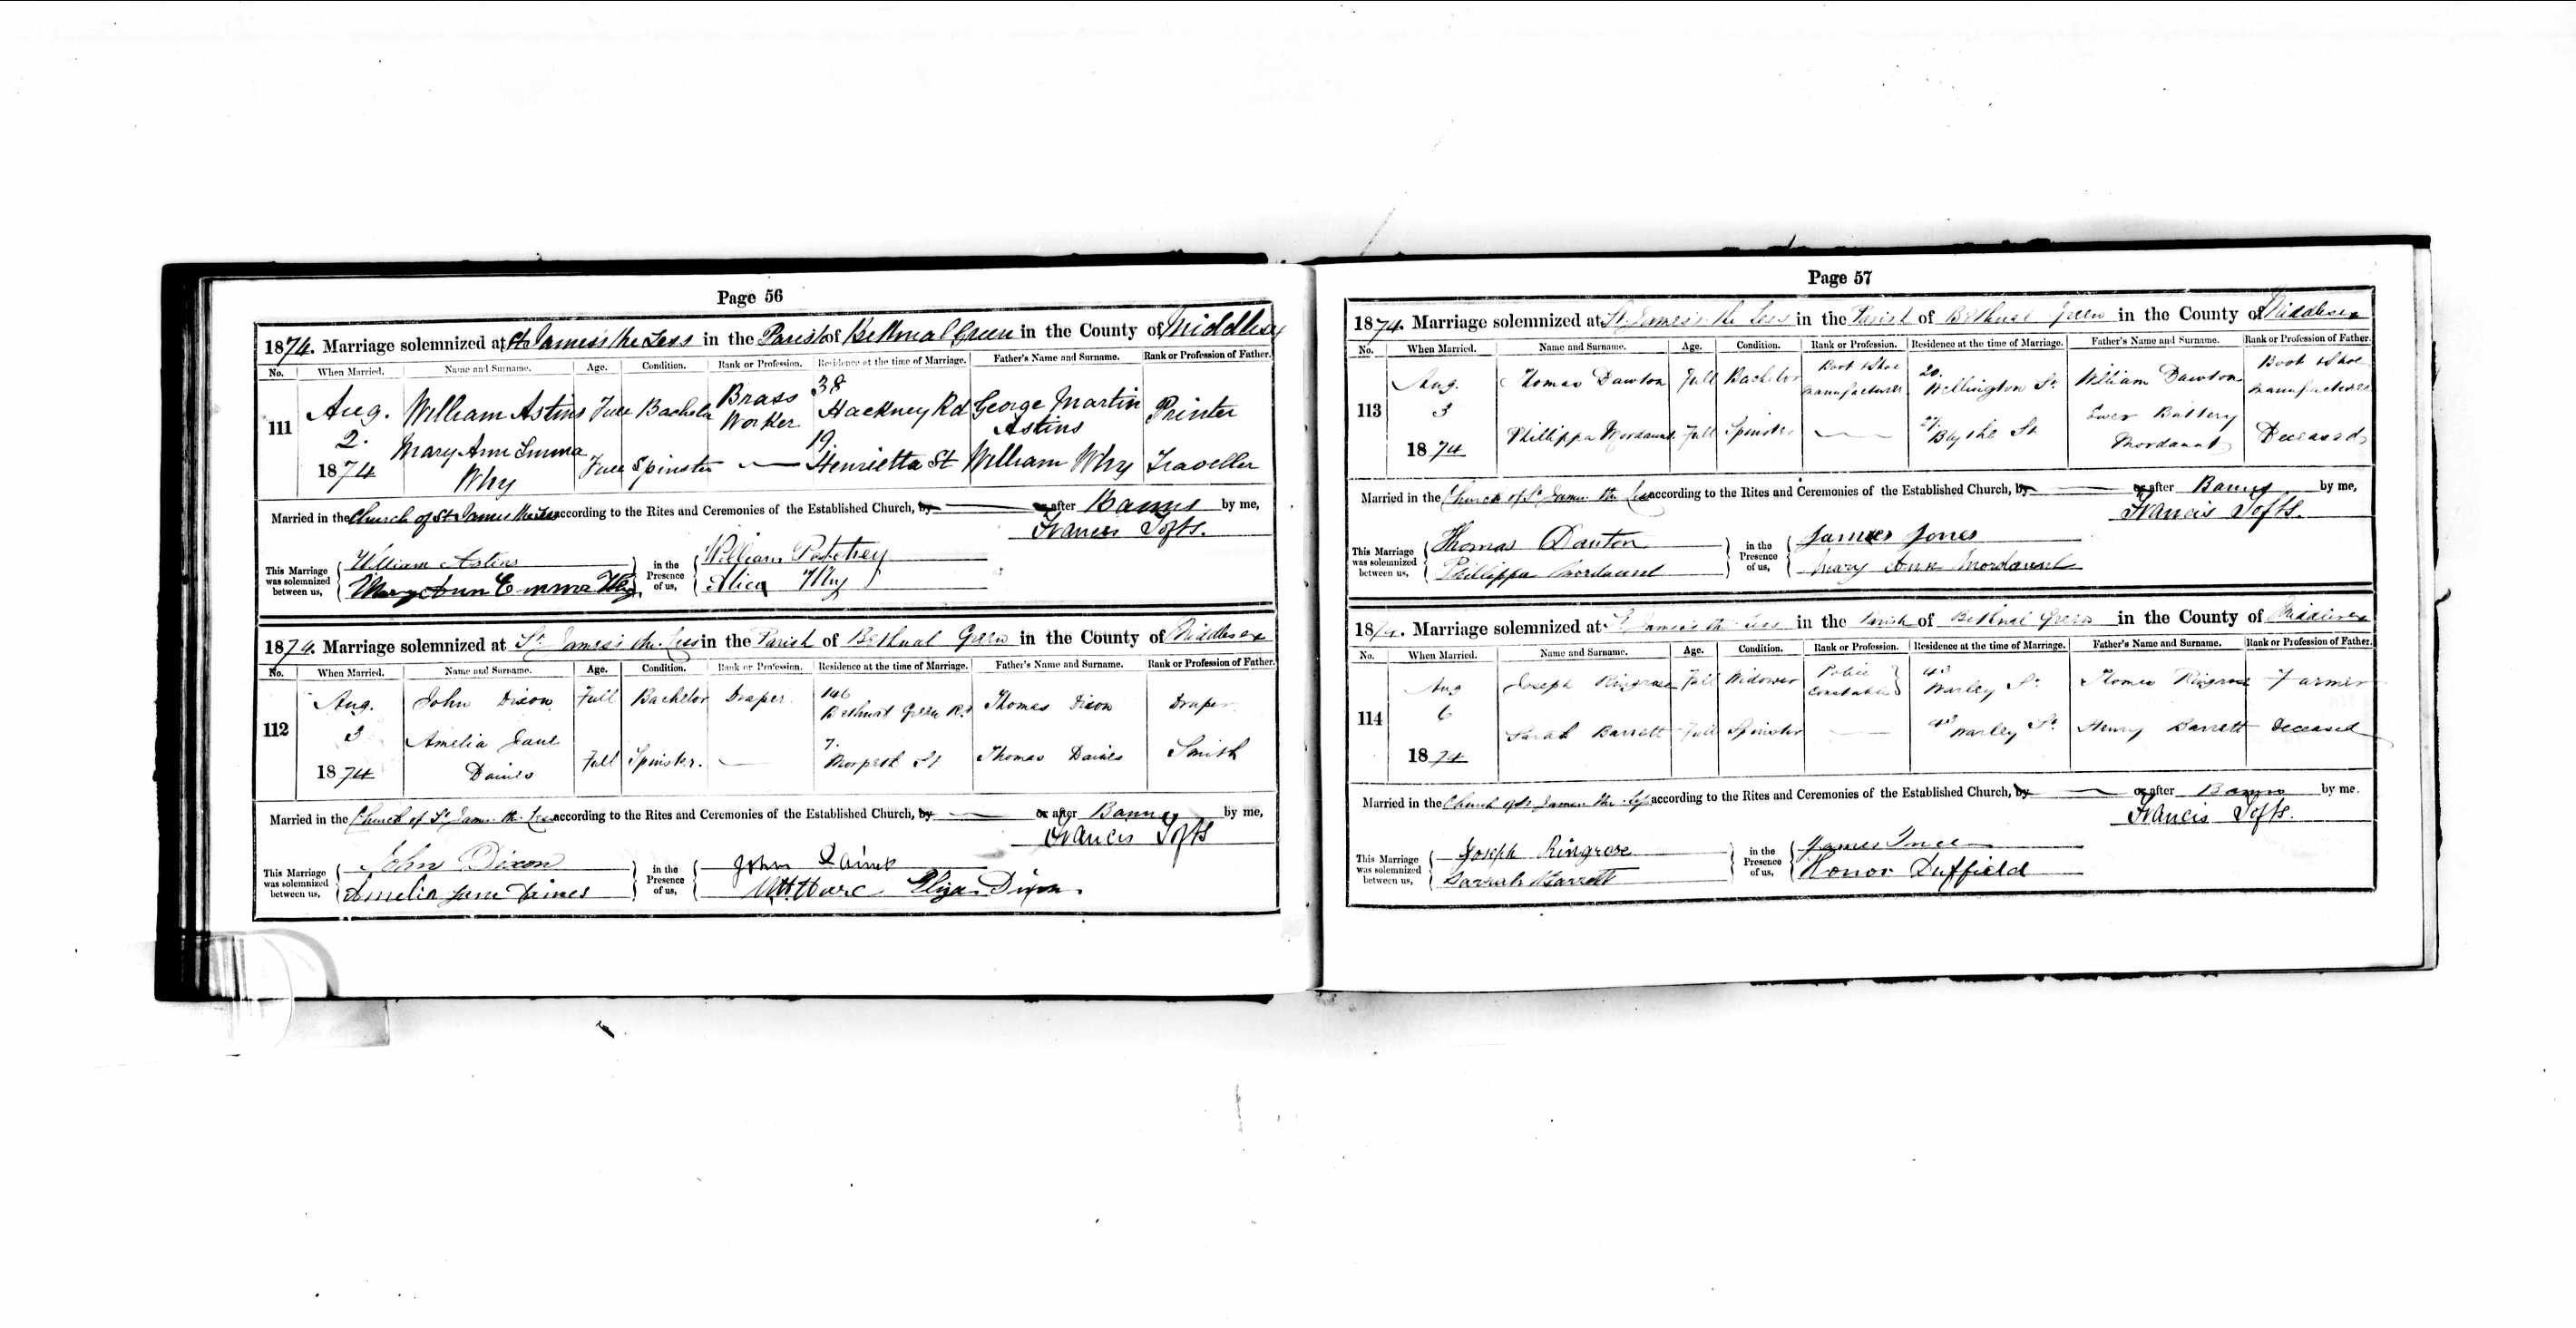 Page 56
1874. Marriage solemnized at St James's the Less in the Parish of Bethnal Green in the County of Middlesex
No. When Married. Name and Surname. Age. Condition. Rank or Profession. Residence at the time of Marriage. Father's Name and Surname. Rank or Profession of Father.
111 Aug. 2. 1874 William Astins Full Bachelor Brass Worker 38 Hackney Rd George Martin Astins Printer
Mary Ann Emma Why Full Spinster — 19. Henrietta St William Why Traveller
Married in the Church of St James the Less according to the Rites and Ceremonies of the Established Church, by — or after Banns by me,
Francis Tofts.
This Marriage was solemnized between us, William Astins in the Presence of us, William
Mary Ann Emma Why Alice Why
1874. Marriage solemnized at St James's the Less in the Parish of Bethnal Green in the County of Middlesex
No. When Married. Name and Surname. Age. Condition. Rank or Profession. Residence at the time of Marriage. Father's Name and Surname. Rank or Profession of Father.
112 Aug. 3 1874 John Dixon Full Bachelor Draper. 146 Bethnal Green Rd Thomas Dixon Draper.
Amelia Jane Daines Full Spinster. — 7. Morpeth St Thomas Daines Smith
Married in the Church of St James the Less according to the Rites and Ceremonies of the Established Church, by — or after Banns by me,
Francis Tofts
This Marriage was solemnized between us, John Dixon in the Presence of us, John Daines
Amelia Jane Daines Eliza Dixon.
Page 57
1874. Marriage solemnized at St James's the Less in the Parish of Bethnal Green in the County of Middlesex
No. When Married. Name and Surname. Age. Condition. Rank or Profession. Residence at the time of Marriage. Father's Name and Surname. Rank or Profession of Father.
113 Aug. 3 1874 Thomas Dawton Full Bachelor Boot & Shoe manufacturer 20. Wellington St William Dawton Boot & Shoe manufacturer
Phillippa Mordaunt Full Spinster — 27. Blythe St Battery Mordaunt Deceased
Married in the Church of St James the Less according to the Rites and Ceremonies of the Established Church, by — or after Banns by me,
Francis Tofts.
This Marriage was solemnized between us, Thomas Dauton in the Presence of us, James Jones
Phillippa Mordaunt Mary Ann Mordaunt
1874. Marriage solemnized at St James's the Less in the Parish of Bethnal Green in the County of Middlesex
No. When Married. Name and Surname. Age. Condition. Rank or Profession. Residence at the time of Marriage. Father's Name and Surname. Rank or Profession of Father.
114 Aug 6 1874 Joseph Ringrose Full Widower Police Constable 43 Warley St Thomas Ringrose Farmer
Sarah Barrett Full Spinster — 43 Warley St Henry Barrett deceased
Married in the Church of St James the Less according to the Rites and Ceremonies of the Established Church, by — or after Banns by me.
Francis Tofts.
This Marriage was solemnized between us, Joseph Ringrose in the Presence of us, James Ince
Sarrah Barrett Honor Duffield